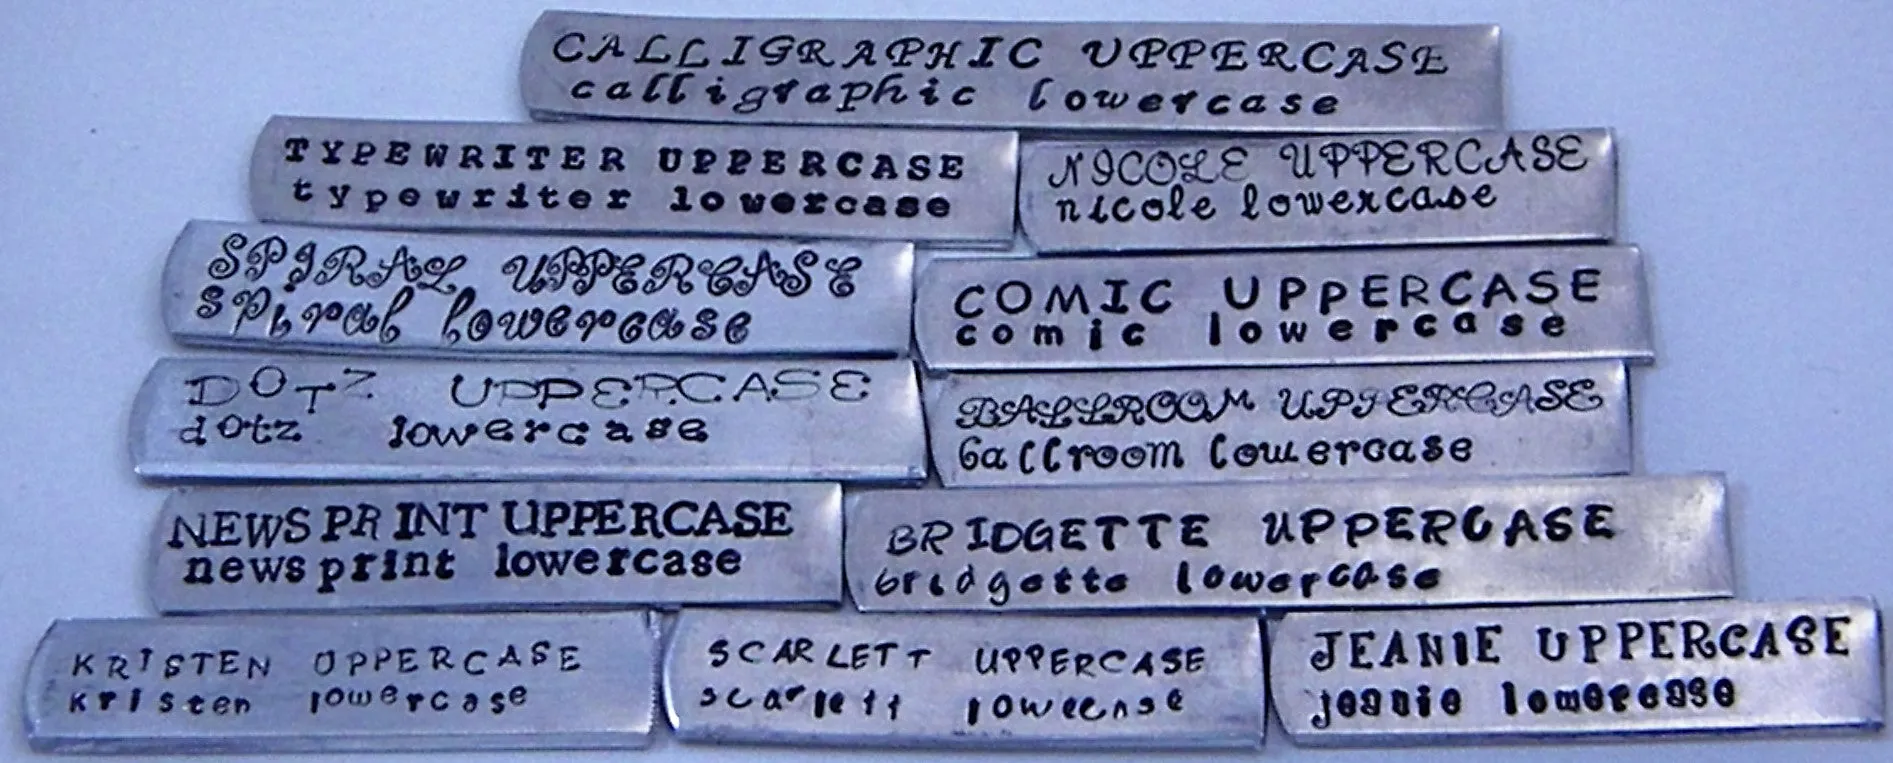 CALLIGRAPHIC UPPERCASE
calligraphic lowercase
TYPEWRITER UPPERCASE
typewriter lowercase
NICOLE UPPERCASE
nicole lowercase
SPIRAL UPPERCASE
spiral lowercase
COMIC UPPERCASE
comic lowercase
DOTZ UPPERCASE
dotz lowercase
BALLROOM UPPERCASE
ballroom lowercase
NEWSPRINT UPPERCASE
newsprint lowercase
BRIDGETTE UPPERCASE
bridgette lowercase
KRISTEN UPPERCASE
kristen lowercase
SCARLETT UPPERCASE
scarlett lowercase
JEANIE UPPERCASE
jeanie lowercase